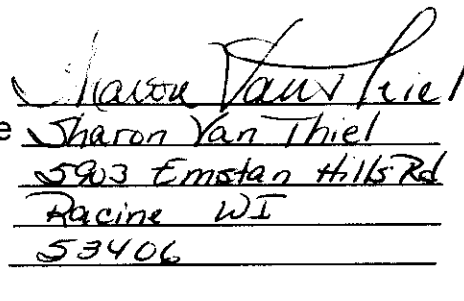 Sharon Van Thiel
e Sharon Van Thiel
5903 Emstan Hills Rd
Racine WI
53406